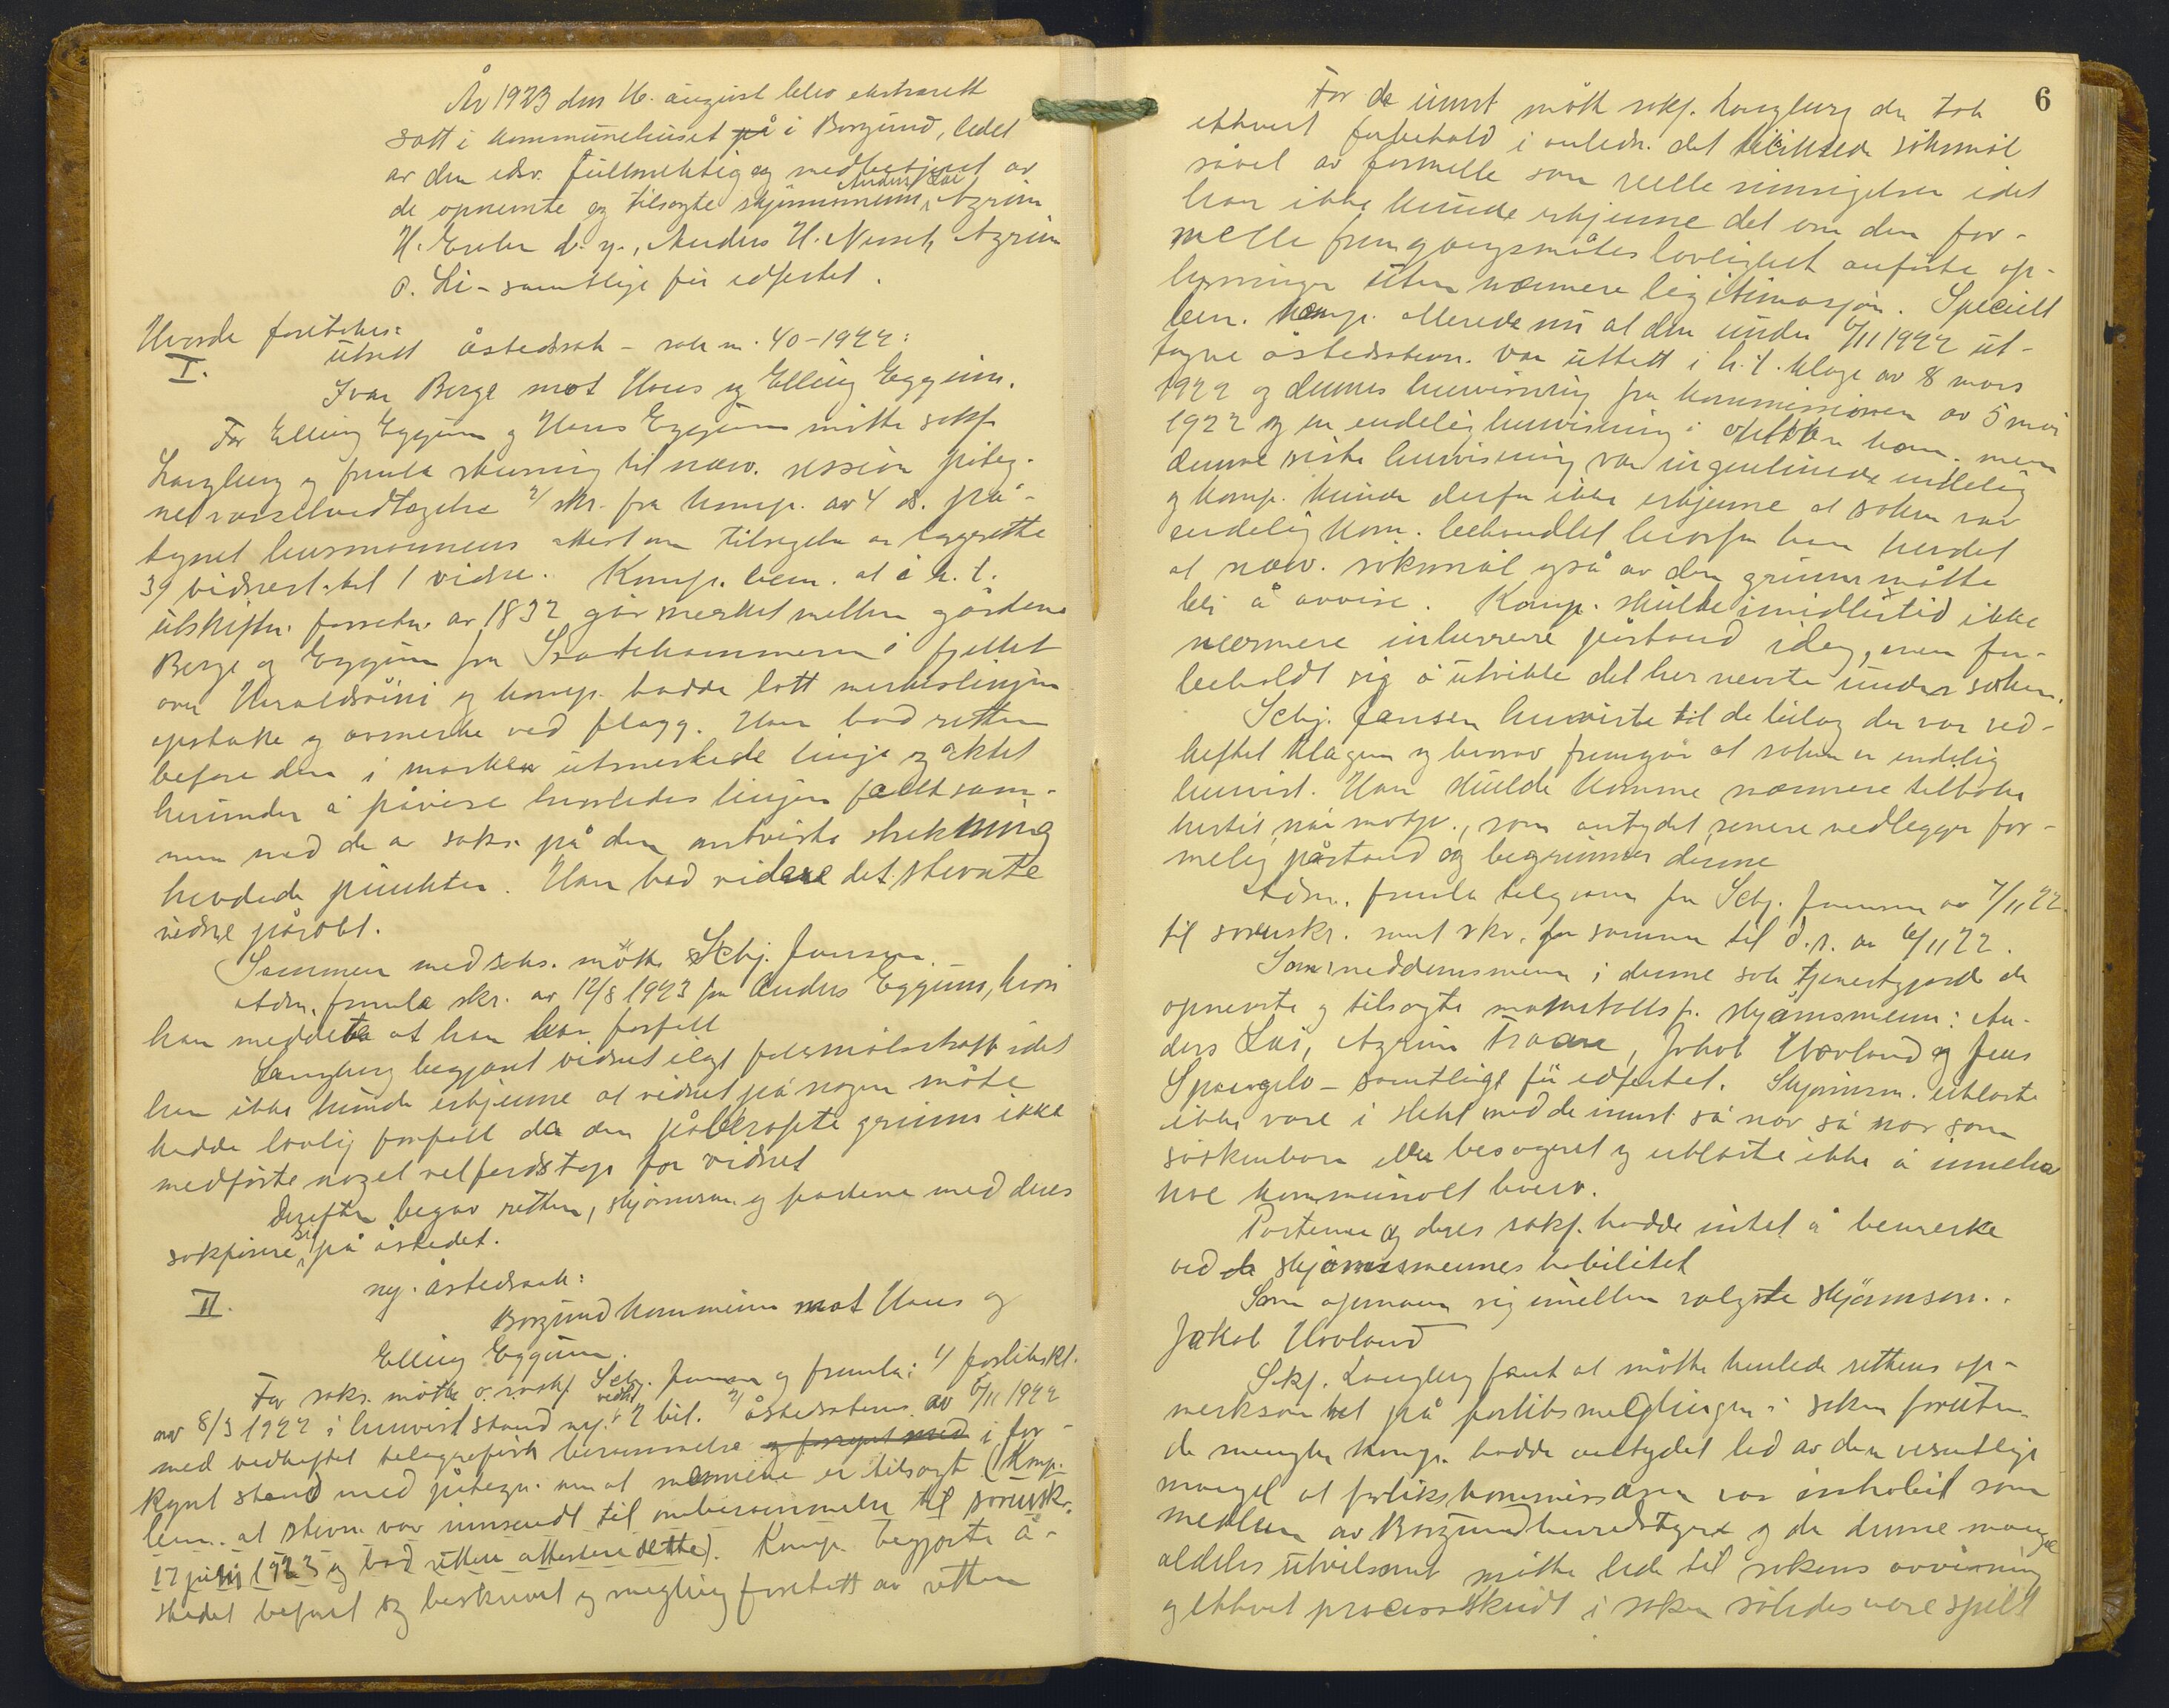 År 1923 den 16. august blev ekstrarett
satt i kommunehuset på i Borgund, ledet
av den edsv. fullmektig og medbetjent av
de opnevnte og tilsagte skjönnsmenn Anders Lai, Azrim
H. Ereler d. y., Anders H. Nusch, Azrim
O. Li - samtlige för edfestet.
Hvorda foretokes:
I.
utsatt åstedssak - sak nr. 40-1922:
Ivar Berge mot Hans og Elling Eggum.
For Elling Eggum og Hans Eggum mötte sakf.
Langberg og fremla stevning til nærv. session påteg-
net varselvedtagelse 2/ skr. fra komp. av 4 ds. på-
tegnet lensmannens attest om tilsigelse av lagrette
3/ vidnest. til 1 vidne. Komp. bem. at i h. t.
utskiftn. forretn. av 1832 går merket mellem gårdene
Berge og Eggum fra Svartehammeren i fjellet
over Haraldsröini og komp. hadde latt merkeslinjen
opstake og avmerke ved flagg. Han bad retten
befare den i marken utmerkede linje og aktet
herunder å påvise hvorledes linjen faldt sam-
men med de av saks. på den omtviste strekning
hevdede punkter. Han bad videre det stevnte
vidne påropt.
Sammen med saks. mötte Schj. Jansen.
Adm. fremla skr. av 12/8 1923 fra Anders Eggum, hvori
han meddelte at han har forfall
Langberg begjært vidnet ilagt faldsmålsstraff idet
han ikke kunde erkjenne at vidnet på nogen måte
hadde lovlig forfall da den påberopte grunn ikke
medförte noget velferdstap for vidnet
Derefter begav retten, skjönnsm. og partene med deres
sakförere sig på åstedet.
II.
ny. åstedssak:
Borgund kommune mot Hans og
Elling Eggum.
For saks. mötte o. r. sakf. Schj. Jansen og fremla: 1/ forlikskl.
av 8/3 1922 i henvist stand ny. vedh. 2 bil. 2/ åstedsstevn. av 6/11 1922
med vedheftet telegrafisk berammelse og forsynt med i for-
kynt stand med påtegn. om at mennene er tilsagt (Komp.
bem. at stevn. var innsendt til omberammelse til sorenskr.
17 juli 1923 og bad retten attestere dette). Komp. begjærte å-
stedet befaret og beskrevet og megling foretatt av retten
6
For de innst. mött sakf. Langberg der tok
ethvert forbehold i anledn. det tilsiktede söksmål
såvel av formelle som reelle innsigelser idet
han ikke kunde erkjenne det om den for-
melle fremgangsmåtes lovlighet anförte op-
lysninger uten nærmere legitimasjon. Specielt
bem. komp. allerede nu at den under 6/11 1922 ut-
tagne åstedsstevn. var uttatt i h. t. klage av 8 mars
1922 og dennes henvisning fra kommissionen av 5 mai
1922 og en endelig henvisning i oktober kom. men
denne siste henvisning var ingenlunde endelig
og komp. kunde derfor ikke erkjenne at saken var
endelig kom. behandlet hvorfor han hevdet
at nærv. söksmål også av den grunn måtte
bli å avvise. Komp. skulde imidlertid ikke
nærmere inkurrere påstand idag, men for-
beholdt sig å utvikle det her nevnte under saken.
Schj. Jansen henviste til de bilag der var ved-
heftet klagen og hvorav fremgår at saken er endelig
henvist. Han skulde komme nærmere tilbake
hertil, når motp., som antydet, senere nedlegger for-
melig påstand og begrunner denne
Adm. fremla telegram fra Schj. Jansen av 7/11 22
til sorenskr. samt skr. fra samme til d. s. av 6/11 22.
Som meddomsmenn i denne sak tjenestgjorde de
opnevnte og tilsagte manntallsf. skjönsmenn: An-
ders Lai, Azrim Traan, Jakob Hovland og Jens
Spangelo - samtlige för edfestet. Skjönsm. erklærte
ikke være i slekt med de innst. så nær så nær som
söskenbarn eller besvogret og erklærte ikke å inneha
noe kommunalt hverv.
Partene og deres sakf. hadde intet å bemerke
ved de skjönnsmennes habilitet
Som opmann sig imellem valgte skjönnsm.
Jakob Hovland
Skf. Langberg fant at måtte henlede rettens op-
merksomhet på forliksmeglingen i saken foruten
de mangler komp. hadde antydet led av den vesentlige
mangel at forlikskommissæren var inhabil som
medlem av Borgund herredstyre og da denne mangel
aldeles utvilsomt måtte lede til sakens avvisning
og ethvert processskridt i saken således være spilt